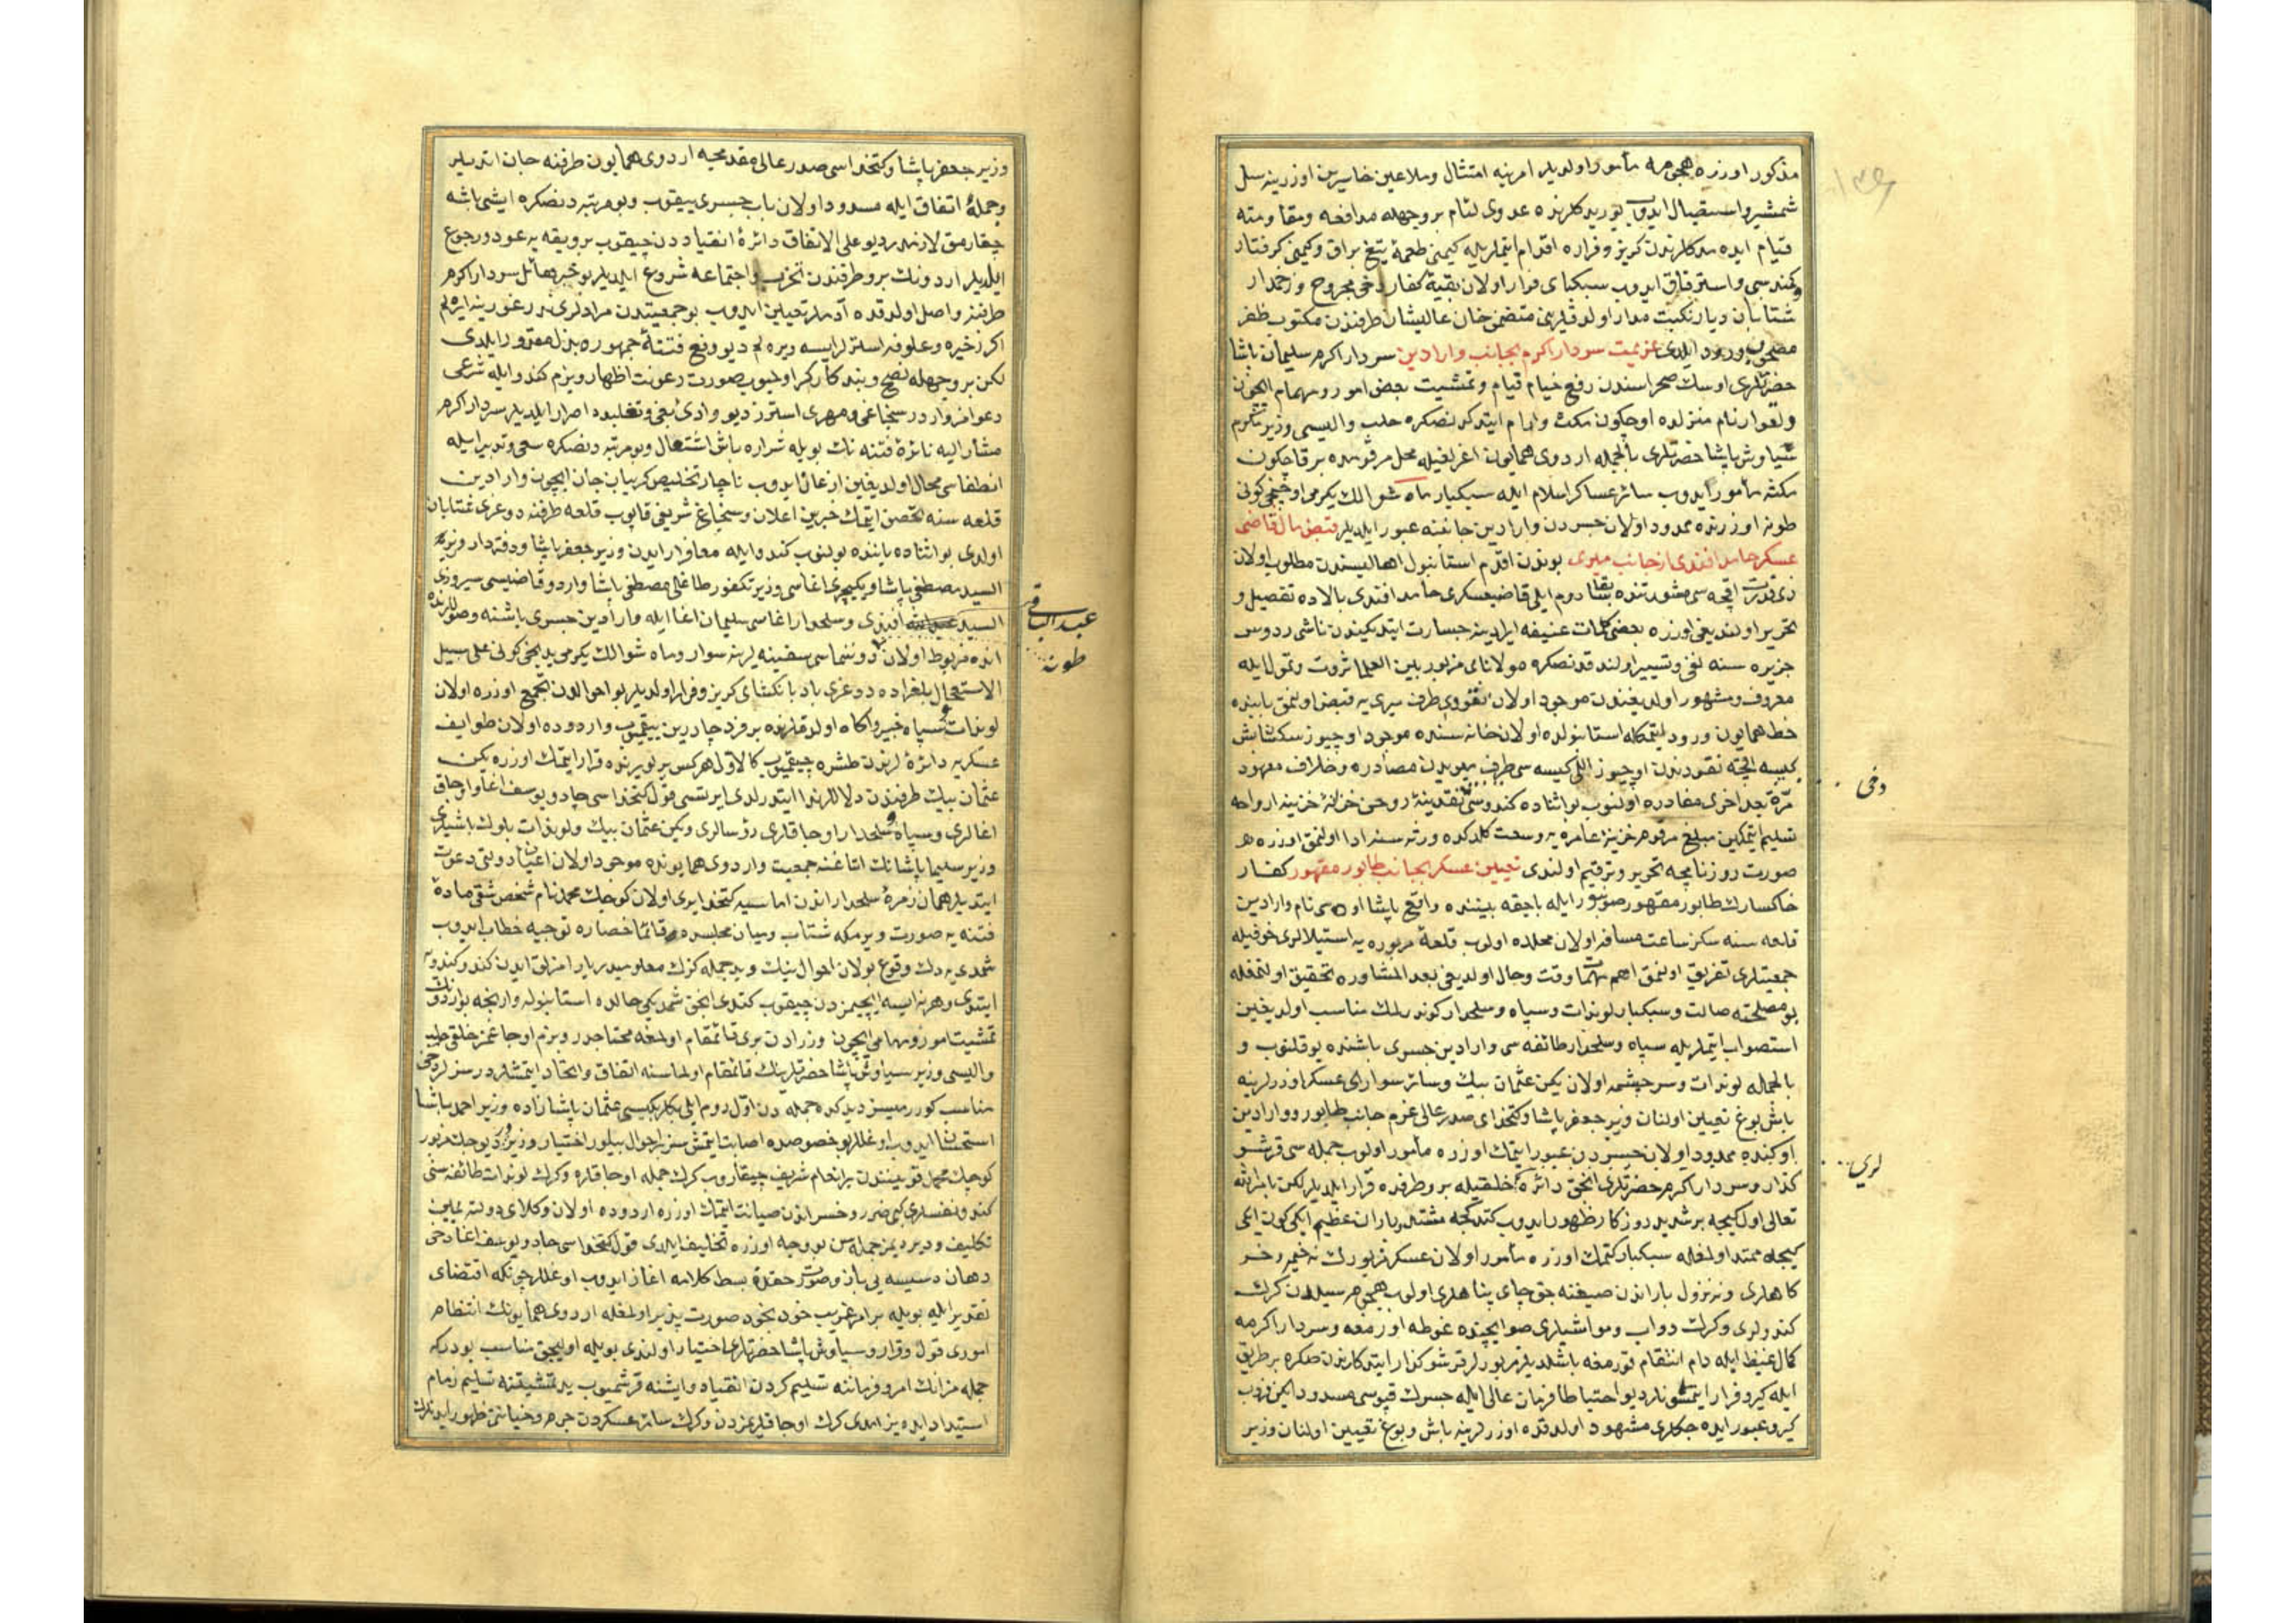 مذكور اوزره هجومه مأمور اولديلر امرينه امتثال وملاعين خاسرين اوزرينه سل
شمشير واستقبال ايدوب يوريدكلرنده عدوى لئام بر وجهله مدافعه ومقاومته
قيام ايده مدكلرندن كريز وفراره اقدام ايتملريله كيمى طعمۀ تيغ براق وكيمى كرفتار
كمند سبى واسترقاق ايدوب سبكپاى فرار اولان بقيۀ كفار دخى مجروح وزخمدار
شتابان ديار نكبت مدار اولدقلرينى متضمن خان عاليشان طرفندن مكتوب ظفر
مصحوب ورود ايلدى عزيمت سردار اكرم بجانب وارادين سردار اكرم سليمان پاشا
حضرتلرى اوسك صحراسندن رفع خيام قيام وتمشيت بعض امور ومهام ايچون
ولقوار نام منزلده اوچ كون مكث وارام ايتدكدنصكره حلب واليسى وزير مكرم
سياوش پاشا حضرتلرى بالجمله اردوى همايون اغرلغيله محل مرقومده بر قاچ كون
مكثه مأمور ايدوب سائر عساكر اسلام ايله سبكبار ماه شوالك يكرمى اوچنجى كونى
طونه اوزرنده ممدود اولان جسردن وارادين جانبنه عبور ايلديلر قبض مال قاضى
عسكر حامد افندى از جانب ميرى بوندن اقدم استانبول اهاليسندن مطلوب اولان
اقچه سى مشورتنده سابقا روم ايلى قاضيعسكرى حامد افندى بالاده تفصيل و
تحرير اولنديغى اوزره بعضى كلمات عنيفه ايرادينه جسارت ايتديكندن ناشى ردوس
جزيره سنه نفى وتسيير اولندقدنصكره مولاناى مزبور بين العلما ثروت وتمول ايله
معروف ومشهور اولديغندن موجود اولان نقودى طرف ميرى يه قبض اولنمق بابنده
خط همايون ورود ايتمكله استانبولده اولان خانه سنده موجود اوچيوز سكسان بش
كيسه اقچه نقودندن اوچيوز اللى كيسه سى طرف ميريدن مصادره وخلاف معهود
مرّة بعد اخرى مصادره اولنوب بو اثناده كندوسى نقدينۀ روحن خزانۀ خزينه ارواحه
تسليم ايتمكين مبلغ مرقوم خزينۀ عامره يه وسعت كلدكده ورثه سنه ادا اولنمق اوزره هر
صورت روزنامچه تحرير وترقيم اولندى تعيين عسكر بجانب طابور مقهور كفار
خاكسارك طابور مقهور ايله باچقه بيننده واقع پاشا اوه سى نام وارادين
قلعه سنه سكز ساعت مسافه اولان محلده اولوب قلعۀ مزبوره يه استيلالرى خوفيله
جمعيتلرى تفريق اولنمق اهم مهمات وقت وحال اولديغى بعد المشاوره تحقيق اولنمغله
بو مصلحته صالت وسبكبار لوندات وسپاه وسلحدار كوندرلمك مناسب اولديغين
استصواب ايتملريله سپاه وسلحدار طائفه سى وارادين جسرى باشنده يوقلنوب و
بالجمله لوندات وسرچشمه اولان يكن عثمان بيك وسائر سوارى عسكر اوزرلرينه
باش بوغ تعيين اولنان وزير جعفر پاشا وكتخداى صدر عالى عزم جانب طابور ووارادين
اوكنده ممدود اولان جسردن عبور ايتمك اوزره مأمور اولوب جمله سى قرشو
كذار وسردار اكرم حضرتلرى انجق دائره خلقيله برو طرفده قرار ايلديلر لكن بامر الله
تعالى اول كيجه بر شديد روزكار ظهور ايدوب كتدكجه مشتد باران عظيم ايكى كون ايكى
كيجه ممتد اولمغله سبكبار كتمك اوزره مأمور اولان عسكر مزبورك نه خيمه وخر
كاهلرى ونه نزول باراندن صيغنه جق جاى پناهلرى اولوب هجوم سيلدن كرك
كندولرى وكرك دواب ومواشيلرى صو ايچنده غوطه اورمغه وسردار اكرمه
كمال غيظ ايله دام انتقام قورمغه باشلديلر مزبورلر قرشو كذار ايتدكلرندن صكره بر طريق
ايله كيرو فرار ايتمسونلر ديو احتياطا فرمان عالى ايله جسرك قپوسى مسدود ايكن دونوب
كيرو عبور ايده جكلرى مشهود اولدقده اوزرلرينه باش وبوغ تعيين اولنان وزير
دخى
لرى
وزير جعفر پاشا وكتخداسى صدر عالى مقدمجه اردوى همايون طرفنه جان اتديلر
وجملۀ اتفاق ايله مسدود اولان باب جسرى ييقوب وبو مرتبه دنصكره ايشى باشه
چقارمق لازمدر ديو على الاتفاق دائرۀ انقياددن چيقوب برويقه يه عود ورجوع
ايلديلر اردونك برو طرفندن تحزب واجتماعه شروع ايلديلر بو خبر هائل سردار اكرم
طرفنه واصل اولدقده آدملر تعيين ايدوب بو جمعيتدن مرادلرى نه در غورينه ايره لم
اكر ذخيره وعلوفه استرلر ايسه ويره لم ديو دفع فتنۀ جمهوره بذل مقدور ايلدى
لكن بر وجهله نصح وپند كاركر اولميوب صورت رعونت اظهار وبزم كندو ايله شرعى
دعوامز واردر سنجاغى ومهرى استرز ديو وادئ بغى وتغلبده اصرار ايلديلر سردار اكرم
مشار اليه نائرۀ فتنه نك بويله شراره پاش اشتعال وبو مرتبه دنصكره سعى وتدبير ايله
انطفاسى محال اولديغين اذعان ايدوب ناچار تخليص كريبان جان ايچون وارادين
قلعه سنه تحصن ايتمك خبرين اعلان وسنجاغ شريفى قاپوب قلعه طرفنه دوغرى شتابان
اولدى بو اثناده يانده بولنوب كندو ايله معا فرار ايدن وزير جعفر پاشا ودفتردار وزير
السيد مصطفى پاشا ويكيچرى اغاسى وزير تكفور طاغلى مصطفى پاشا واردو قاضيسى سيروزى
السيد افندى وسلحدار اغاسى سليمان اغا ايله وارادين جسرى باشنه وصوللرنده
انده مربوط اولان دوننماسى سفينه لرينه سوار وماه شوالك يكرمى يدنجى كونى على سبيل
الاستعجال بلغراده دوغرى بادبانكشاى كريز وفرار اولديلر بو احوالدن تجمع اوزره اولان
لوندات وسپاه خبير واكاه اولدقلرنده بر فرد چادرين ييقميوب واردوده اولان طوايف
عسكريه دائره لرندن طشره چيقميوب كالاول هركس يرلو يرنده قرار ايتمك اوزره يكن
عثمان بيك طرفندن دلاللر ندا ايتدرلدى ايرتسى قول كتخداسى جادو يوسف اغا واوجاق
اغالرى وسپاه وسلحدار اوجاقلرى رؤسالرى ويكن عثمان بيك ولوندات بلوك باشيلرى
وزير سليمان پاشانك اتاغنه جمعيت واردوى همايونده موجود اولان اعيان دولتى دعوت
ايتديلر همان زمرۀ سلحداراندن اماسيه كتخدايرى اولان كوچك محمد نام شخص شقى مادۀ
فتنه يه صورت ويرمكه شتاب وميان مجلسده قائما حضاره توجيه خطاب ايدوب
شمدى يه دك وقوع بولان احوال بنك ويد جمله كزك معلوميدر يارامزلق ايدن كندو كندويه
ايتدى وهر نه ايسه ايچيمزدن چيقوب كتدى انجق شمديكى حالده استانبوله وارنجه بو اردونك
تمشيت امور ومهامى ايچون وزرادن برى قائمقام اولمغه محتاجدر وبزم اوجاغمز خلقى حلب
واليسى وزير سياوش پاشا حضرتلرينك قائمقام اولماسنه اتفاق واتحاد ايتمشلردر سزلر دخى
مناسب كوررميسز ديدكده جمله دن اول روم ايلى بكلربكيسى عثمان پاشا زاده وزير احمد پاشا
استحسان ايدوب اوغللر بو خصوصده اصابت ايتمشسز
كوچك محمد قوينندن بر انعام شريف چيقاروب كرك جمله اوجاقلره وكرك لوندات طائفه سنى
كندو نفسلرى كبى ضرر وخسراندن صيانت ايتمك اوزره اردوده اولان وكلاى دولته يمين
تكليف وبرر برر جمله سن بو وجه اوزره تحليف ايلدى قول كتخداسى جادو يوسف اغا دخى
دهان دسيسه يى باز بسط كلامه اغاز ايدوب اوغللر چونكه اقتضاى
تقدير ايله بويله بر امر غريب خود بخود صورت پذير اولمغله اردوى همايونك انتظام
امورى قول وقرار وسياوش پاشا حضرتلرى اختيار اولندى بويله اوليجق مناسب بودركه
جمله مز انك امر وفرماننه تسليم كردن انقياد وايشنه قرشميوب يد تمشيتنه تسليم زمام
استبداد ايده يز ايمدى كرك اوجاقلريمزدن وكرك سائر عسكردن جرم وخيانتى ظهور ايدنلرك
عبد الباقى
طونه